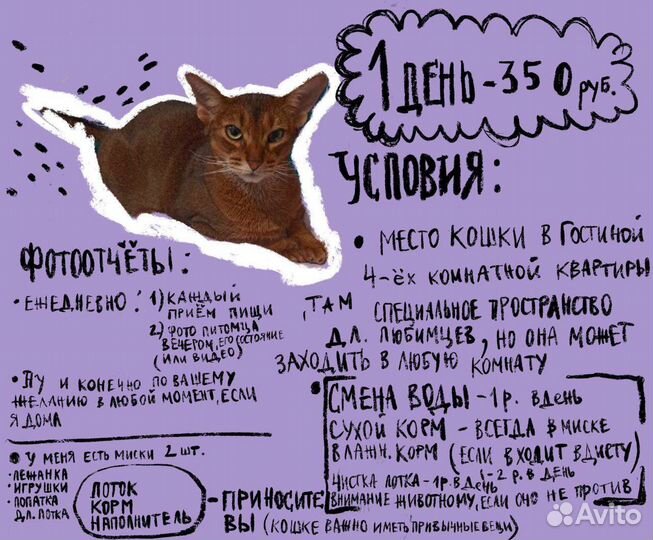 1 ДЕНЬ - 350 руб.
УСЛОВИЯ:
• МЕСТО КОШКИ В ГОСТИНОЙ
4-ЁХ КОМНАТНОЙ КВАРТИРЫ
, ТАМ СПЕЦИАЛЬНОЕ ПРОСТРАНСТВО
ДЛ. ЛЮБИМЦЕВ, НО ОНА МОЖЕТ
ЗАХОДИТЬ В ЛЮБУЮ КОМНАТУ
• СМЕНА ВОДЫ - 1 р. В ДЕНЬ
СУХОЙ КОРМ - ВСЕГДА В МИСКЕ
ВЛАЖН. КОРМ (ЕСЛИ ВХОДИТ В ДИЕТУ)
- 2 р. В ДЕНЬ
ЧИСТКА ЛОТКА - 1р. В ДЕНЬ
ВНИМАНИЕ ЖИВОТНОМУ, ЕСЛИ ОНО НЕ ПРОТИВ
ФОТООТЧЁТЫ:
• ЕЖЕДНЕВНО: 1) КАЖДЫЙ
ПРИЁМ ПИЩИ
2) ФОТО ПИТОМЦА
ВЕЧЕРОМ, ЕГО СОСТОЯНИЕ
(ИЛИ ВИДЕО)
• НУ И КОНЕЧНО ПО ВАШЕМУ
ЖЕЛАНИЮ В ЛЮБОЙ МОМЕНТ, ЕСЛИ
Я ДОМА
• У МЕНЯ ЕСТЬ МИСКИ 2 ШТ.
• ЛЕЖАНКА
• ИГРУШКИ
• ЛОПАТКА
ДЛ. ЛОТКА
ЛОТОК
КОРМ
НАПОЛНИТЕЛЬ
- ПРИНОСИТЕ
ВЫ (КОШКЕ ВАЖНО ИМЕТЬ ПРИВЫЧНЫЕ ВЕЩИ)
Avito